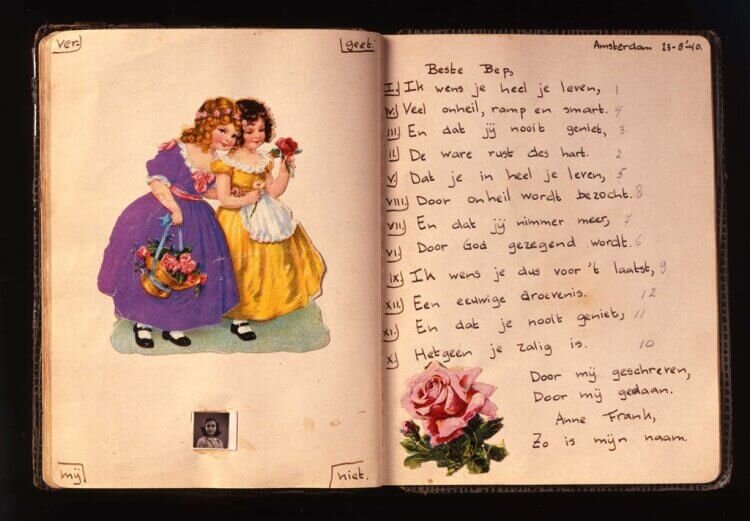 ver.
geet.
mij
niet.
Amsterdam 23-8-'40.
Beste Bep,
I. Ik wens je heel je leven, 1
IV. Veel onheil, ramp en smart. 4
III. En dat jij nooit geniet, 3
II. De ware rust des hart. 2
V. Dat je in heel je leven, 5
VIII. Door onheil wordt bezocht. 8
VII. En dat jij nimmer meer, 7
VI. Door God gezegend wordt. 6
IX. Ik wens je dus voor 't laatst, 9
XII. Een eeuwige droevenis. 12
XI. En dat je nooit geniet, 11
X. Hetgeen je zalig is. 10
Door mij geschreven,
Door mij gedaan.
Anne Frank,
Zo is mijn naam.